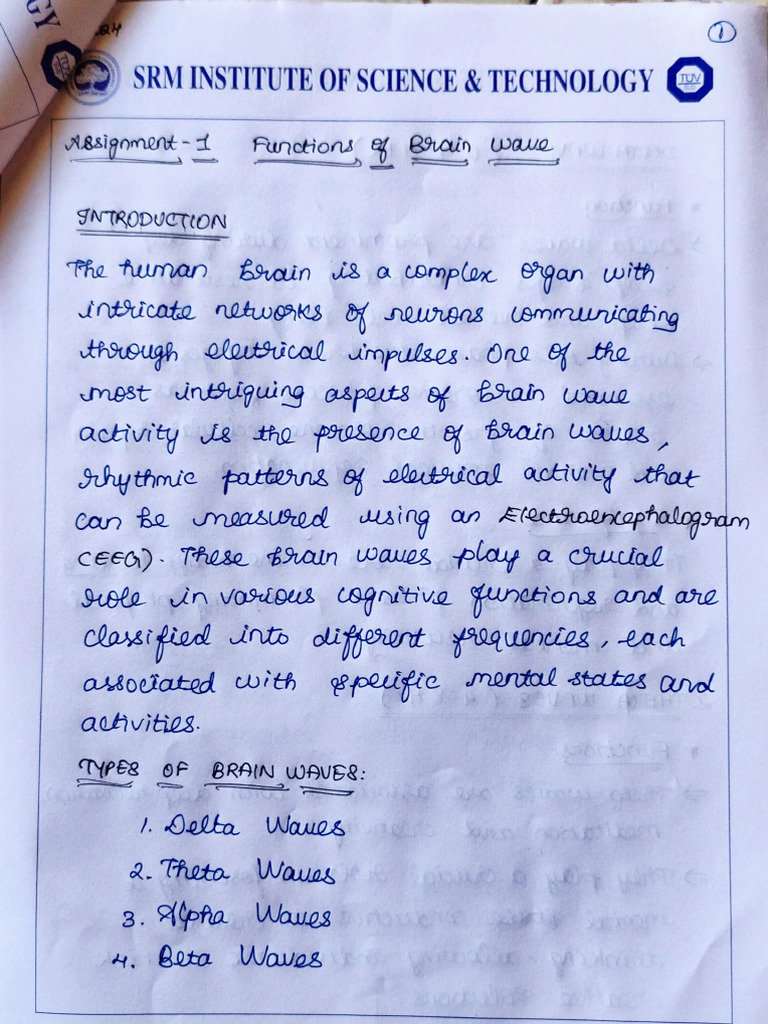 GY
24
1
SRM INSTITUTE OF SCIENCE & TECHNOLOGY
TÜV
Assignment-1 Functions of Brain Wave
INTRODUCTION
The human brain is a complex organ with
intricate networks of neurons communicating
through electrical impulses. One of the
most intriguing aspects of brain wave
activity is the presence of brain waves,
rhythmic patterns of electrical activity that
can be measured using an Electroencephalogram
(EEG). These brain waves play a crucial
role in various cognitive functions and are
classified into different frequencies, each
associated with specific mental states and
activities.
TYPES OF BRAIN WAVES:
1. Delta Waves
2. Theta Waves
3. Alpha Waves
4. Beta Waves